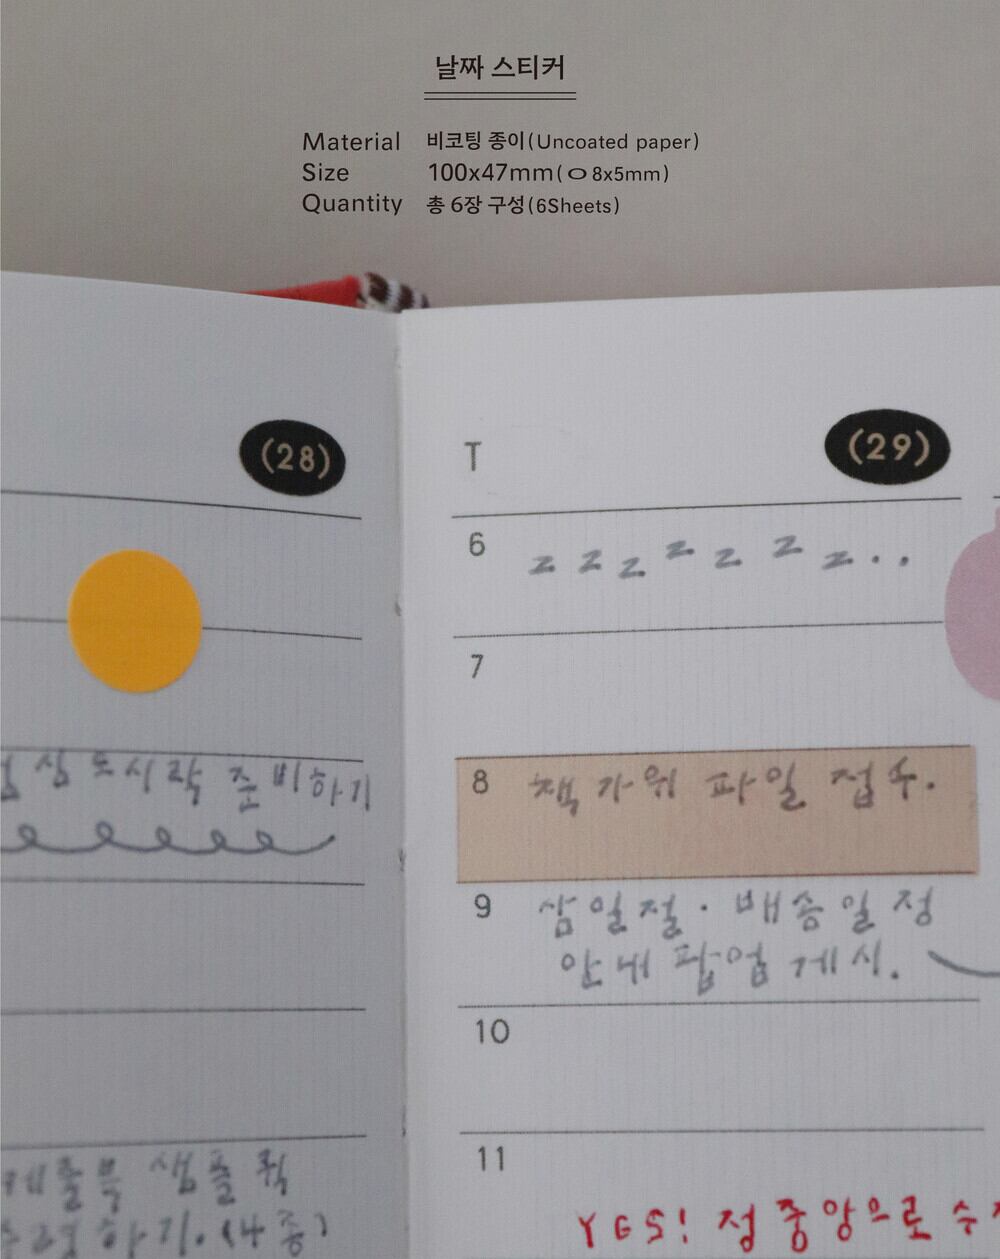 날짜 스티커
Material 비코팅 종이(Uncoated paper)
Size 100x47mm(⬭8x5mm)
Quantity 총 6장 구성(6Sheets)
(28)
도시락 준비하기
샘플 퀵
하기. (4종)
T (29)
6 z z z z z z z . .
7
8 책가위 파일 접수.
9 삼일절·배송일정
안내 팝업 게시.
10
11
YES! 정중앙으로